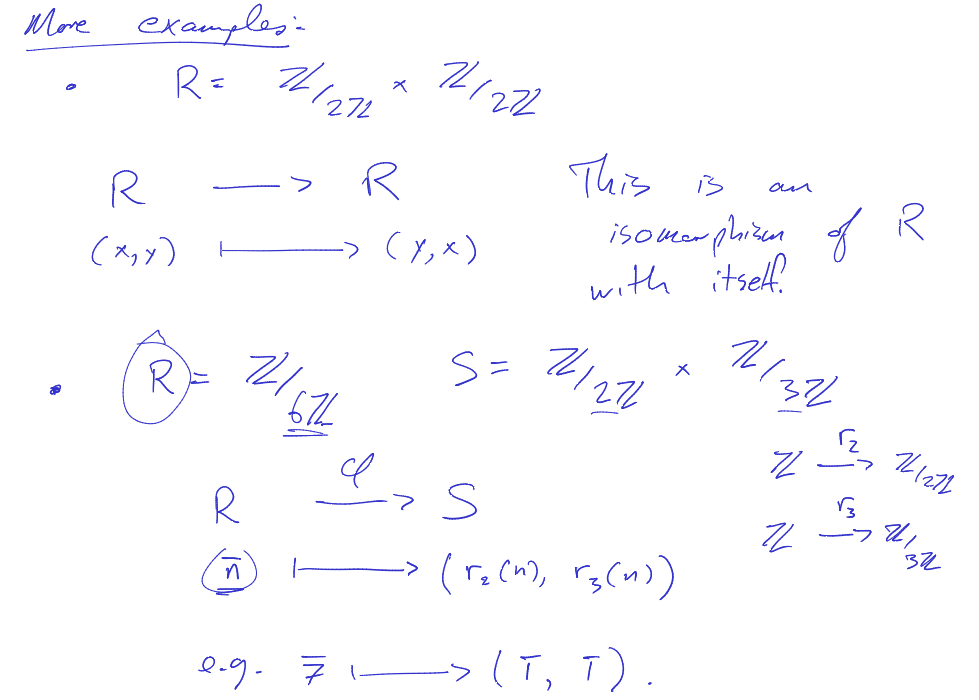 More examples:
• R = ℤ/2ℤ × ℤ/2ℤ
R ⟶ R
(x,y) ⟼ (y,x)
This is an
isomorphism of R
with itself.
• R = ℤ/6ℤ S = ℤ/2ℤ × ℤ/3ℤ
ℤ ⟶ ℤ/2ℤ r₂
ℤ ⟶ ℤ/3ℤ r₃
R ⟶ S φ
n̄ ⟼ (r₂(n), r₃(n))
e.g. 7̄ ⟼ (1̄, 1̄).